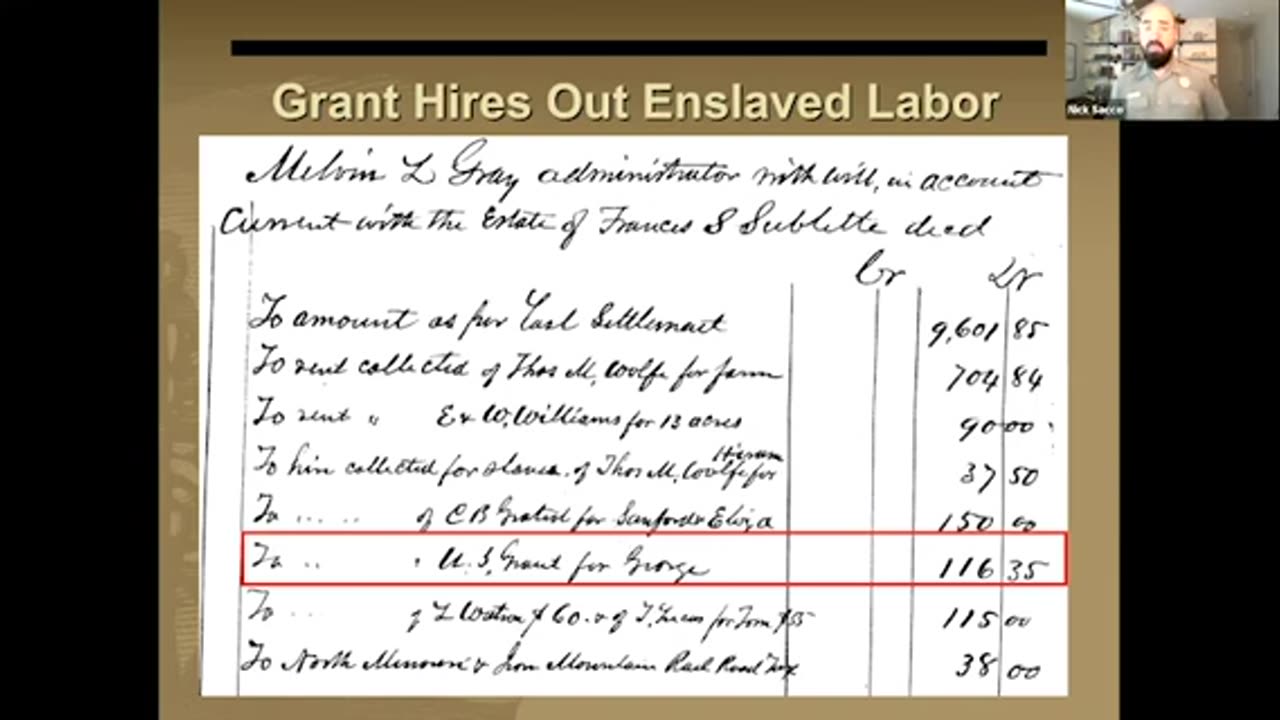 Grant Hires Out Enslaved Labor
Nick Sacco
Melvin L Gray administrator with will, in account
Current with the Estate of Frances S Sublette decd
Cr Dr
To amount as per Last Settlement 9,601 85
To rent collected of Thos M, Woolfe for farm 704 84
To rent " E & W, Williams for 13 acres 90 00
Hiram
To hire collected for slaves of Thos M, Woolfe for 37 50
To " " of C B for Sanford & Eliza 150 00
To " " U. S, Grant for George 116 35
To " of L Watson $ 60. & of T, Lucas for Tom $ 55 115 00
To North Missouri & Iron Mountain Rail Road Tax 38 00